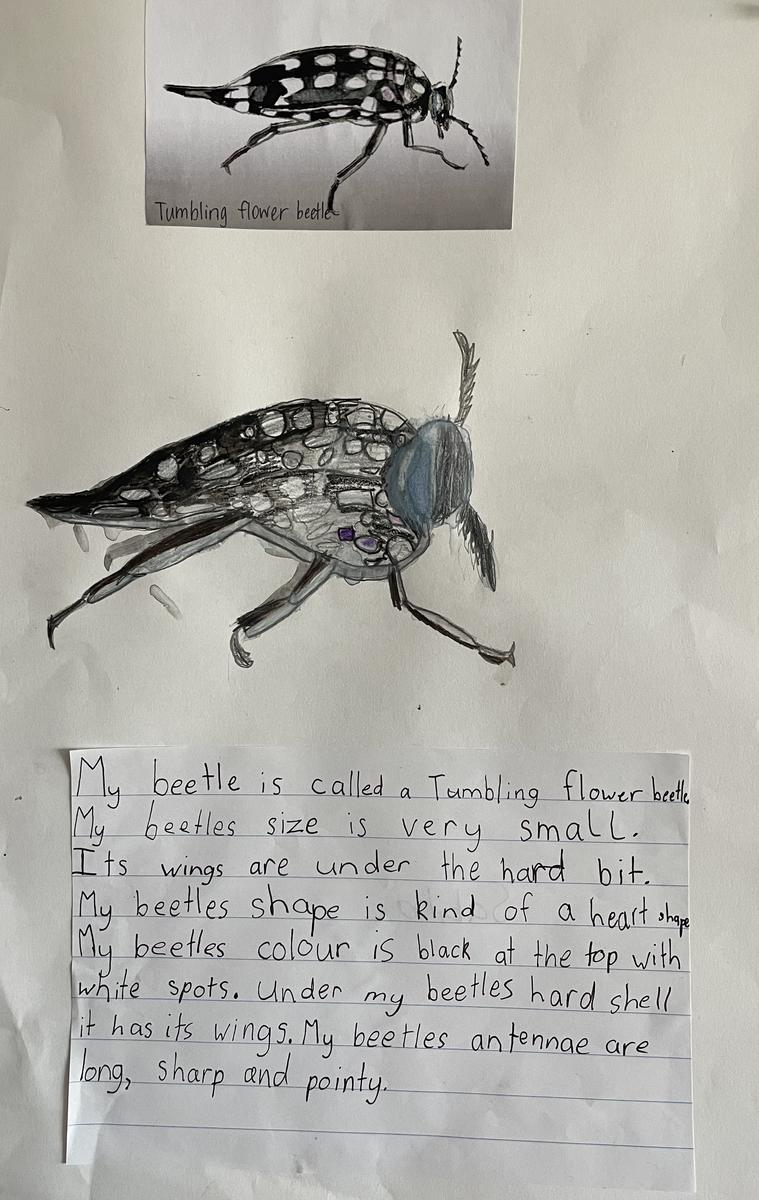 Tumbling flower beetle
My beetle is called a Tumbling flower beetle
My beetles size is very small.
Its wings are under the hard bit.
My beetles shape is kind of a heart shape
My beetles colour is black at the top with
white spots. Under my beetles hard shell
it has its wings. My beetles antennae are
long, sharp and pointy.